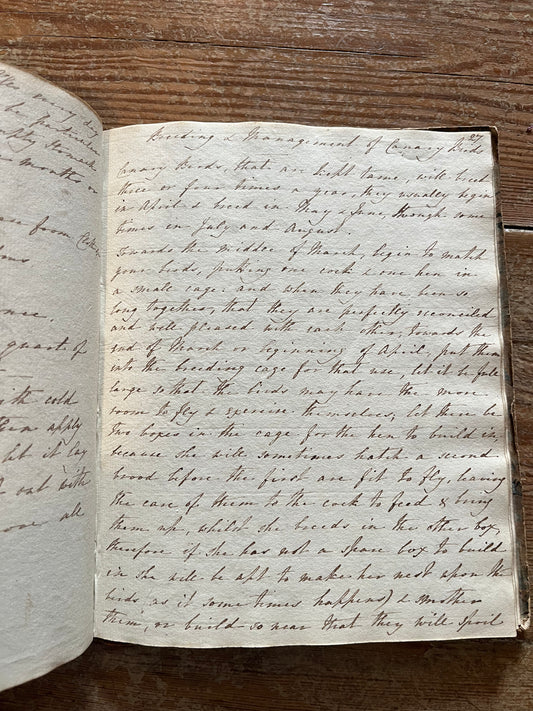 27
Breeding & Management of Canary Birds
Canary Birds, that are kept tame, will breed
three or four times a year, they usualley begin
in April & breed in May & June, though some
times in July and August
Towards the middle of March, begin to match
your birds, putting one cock & one hen in
a small cage; and when they have been so
long together, that they are perfectly reconciled
and well pleased with each other, towards the
end of March or beginning of April, put them
into the breeding cage for that use, let it be full
large so that the birds may have the more
room to fly & exercise themselves, let there be
two boxes in the cage for the hen to build in,
because she will sometimes hatch a second
brood before the first are fit to fly, leaving
the care of them to the cock to feed & bring
them up, whilst she breeds in the other box,
therefore if she has not a spare box to build
in she will be apt to make her nest upon the
birds as it some times happens) & smother
them, or build so near that they will spoil
months or
from
quart of
with cold
them apply
let it lay
out with
all